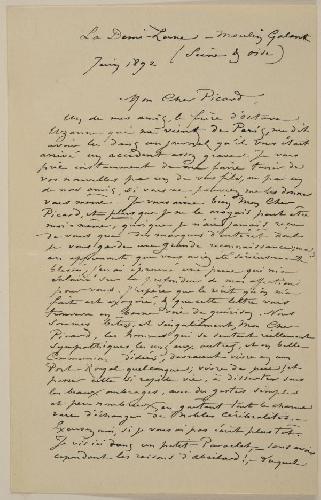 La Demi-Lune – Moulin Galant
(Seine & Oise)
Juin 1892
Mon Cher Picard,
Un de mes amis, le frère d'Octave
Uzanne qui me vient de Paris, me dit
avoir lu dans un journal qu'il vous était
arrivé un accident assez grave. Je vous
prie instamment de me faire tenir de
vos nouvelles par un de vos fils, ou par un
de nos amis, si vous ne pouvez me les donner
vous même. Je vous aime bien Mon Cher
Picard, et plus que je ne le croyais peut être
moi-même, quoique je n'aie jamais reçu
de vous que des marques d'intérêt dont
je vous garde une grande reconnaissance, mais
en apprenant que vous aviez été
blessé, j'en ai éprouvé une peine qui m'a
éclairé sur la profondeur de mon affection
pour vous. J'espère que le récit qu'on m'a
fait est exagéré, & que cette lettre vous
trouvera en bonne voie de guérison. Nous
sommes bêtes, et singulièrement, Mon Cher
Picard, les hommes qui se sentent réellement
sympathiques les uns aux autres, et en belle
Communion d'idées, devraient vivre en un
Port-Royal quelconque; vivre de peu, et
passer cette si rapide vie, à disserter sous
les beaux ombrages, avec des gestes simples
et peu nombreux, en goûtant toute la charme
rare d'échanger de Nobles Cérébralités.
Excusez moi, si je ne vous ai pas écrit plus tôt.
Je vis ici dans un petit Paraclet, – sans avoir
cependant les raisons d'Abeilard! –